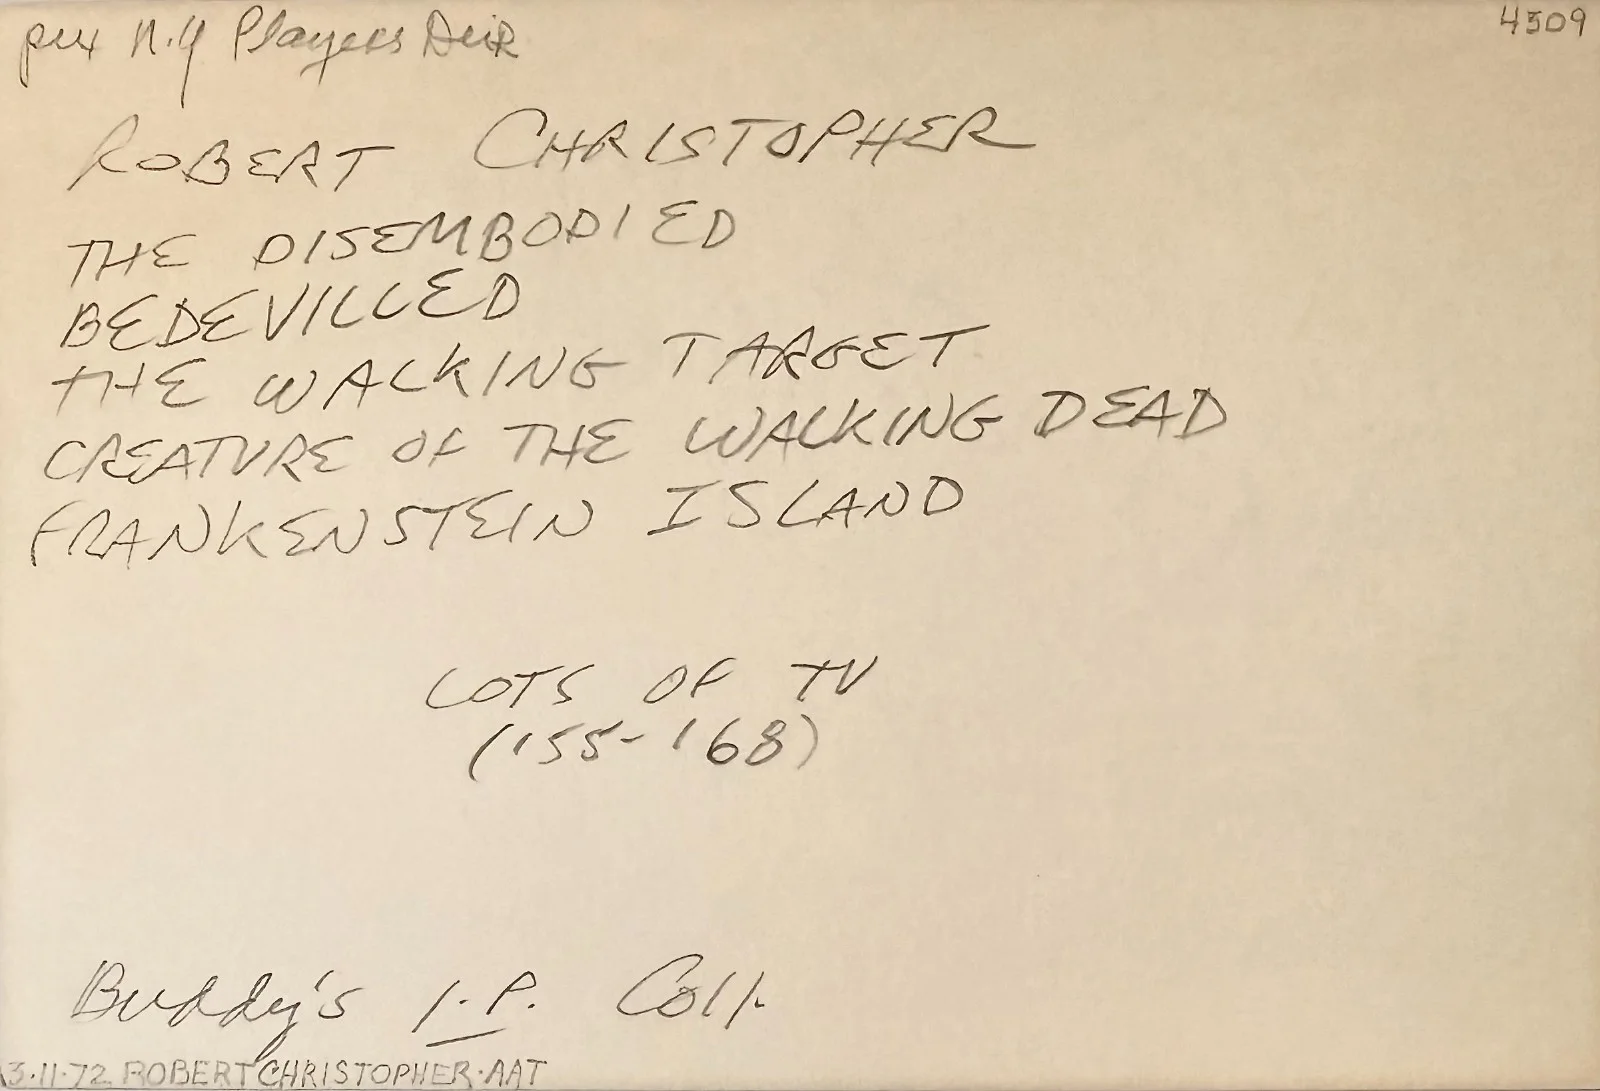 pix N.Y Players Dir
4509
ROBERT CHRISTOPHER
THE DISEMBODIED
BEDEVILLED
THE WALKING TARGET
CREATURE OF THE WALKING DEAD
FRANKENSTEIN ISLAND
LOTS OF TV
('55-'68)
Buddy's I.P. Coll.
3.11.72 ROBERT CHRISTOPHER.AAT